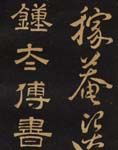 稼菴
鍾太傅書